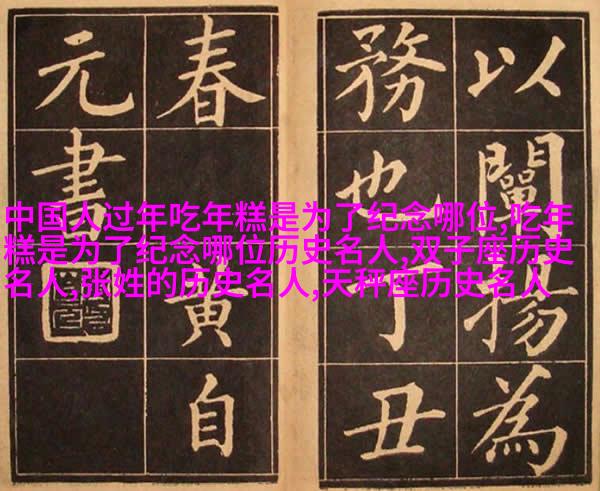 以闡揚為
務也丁丑
春黄自
元書
中国人过年吃年糕是为了纪念哪位,吃年
糕是为了纪念哪位历史名人,双子座历史
名人,张姓的历史名人,天秤座历史名人